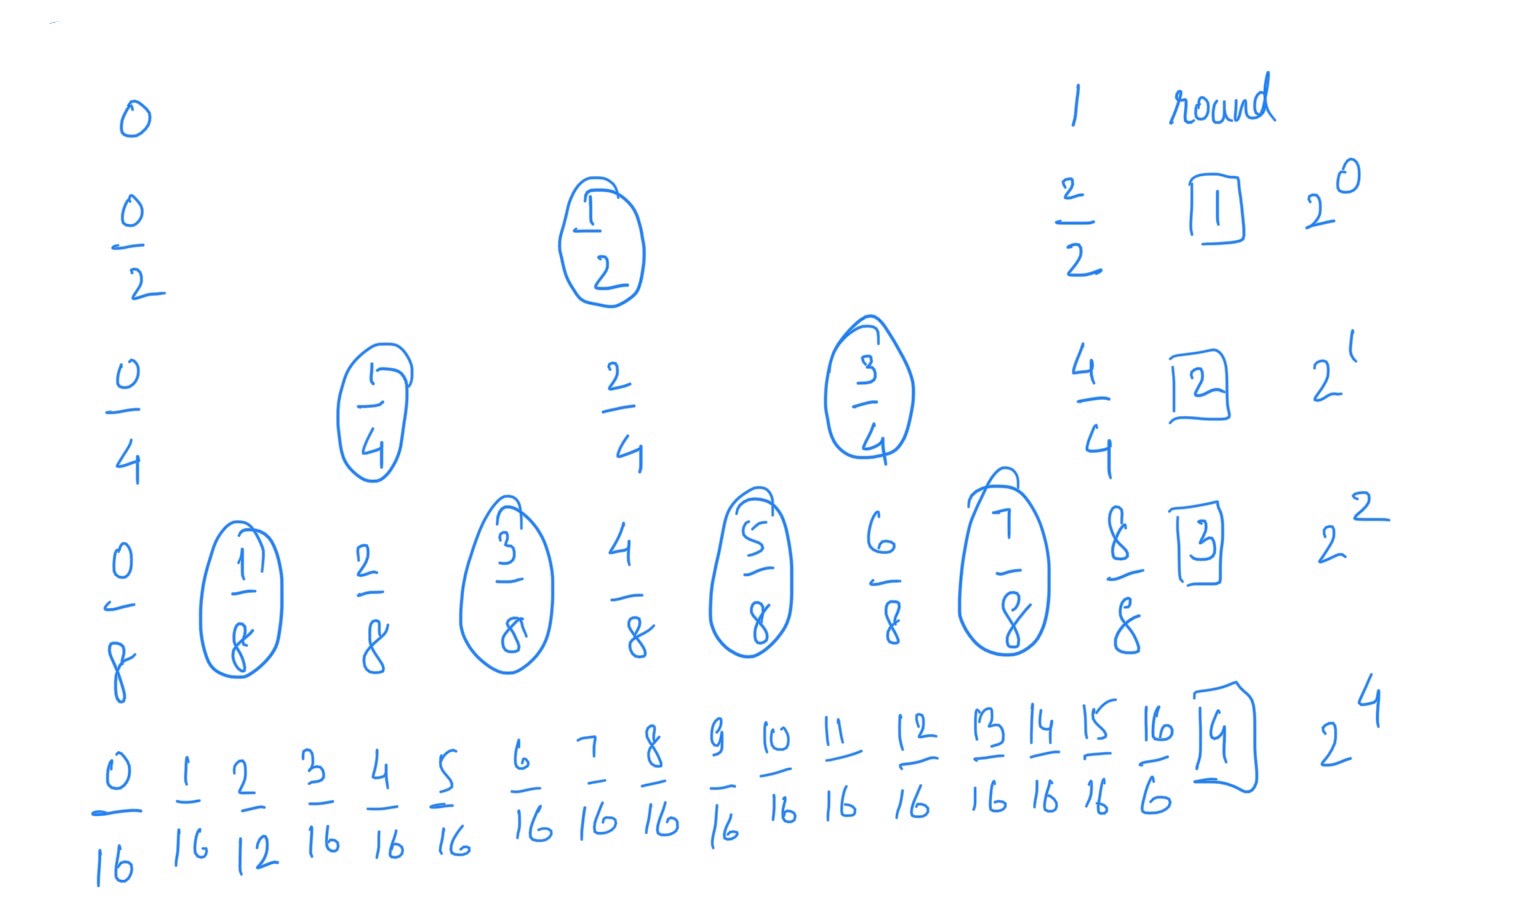 0 1 round
0/2 1/2 2/2 1 2^0
0/4 1/4 2/4 3/4 4/4 2 2^1
0/8 1/8 2/8 3/8 4/8 5/8 6/8 7/8 8/8 3 2^2
0/16 1/16 2/12 3/16 4/16 5/16 6/16 7/16 8/16 9/16 10/16 11/16 12/16 13/16 14/16 15/16 16/6 4 2^4